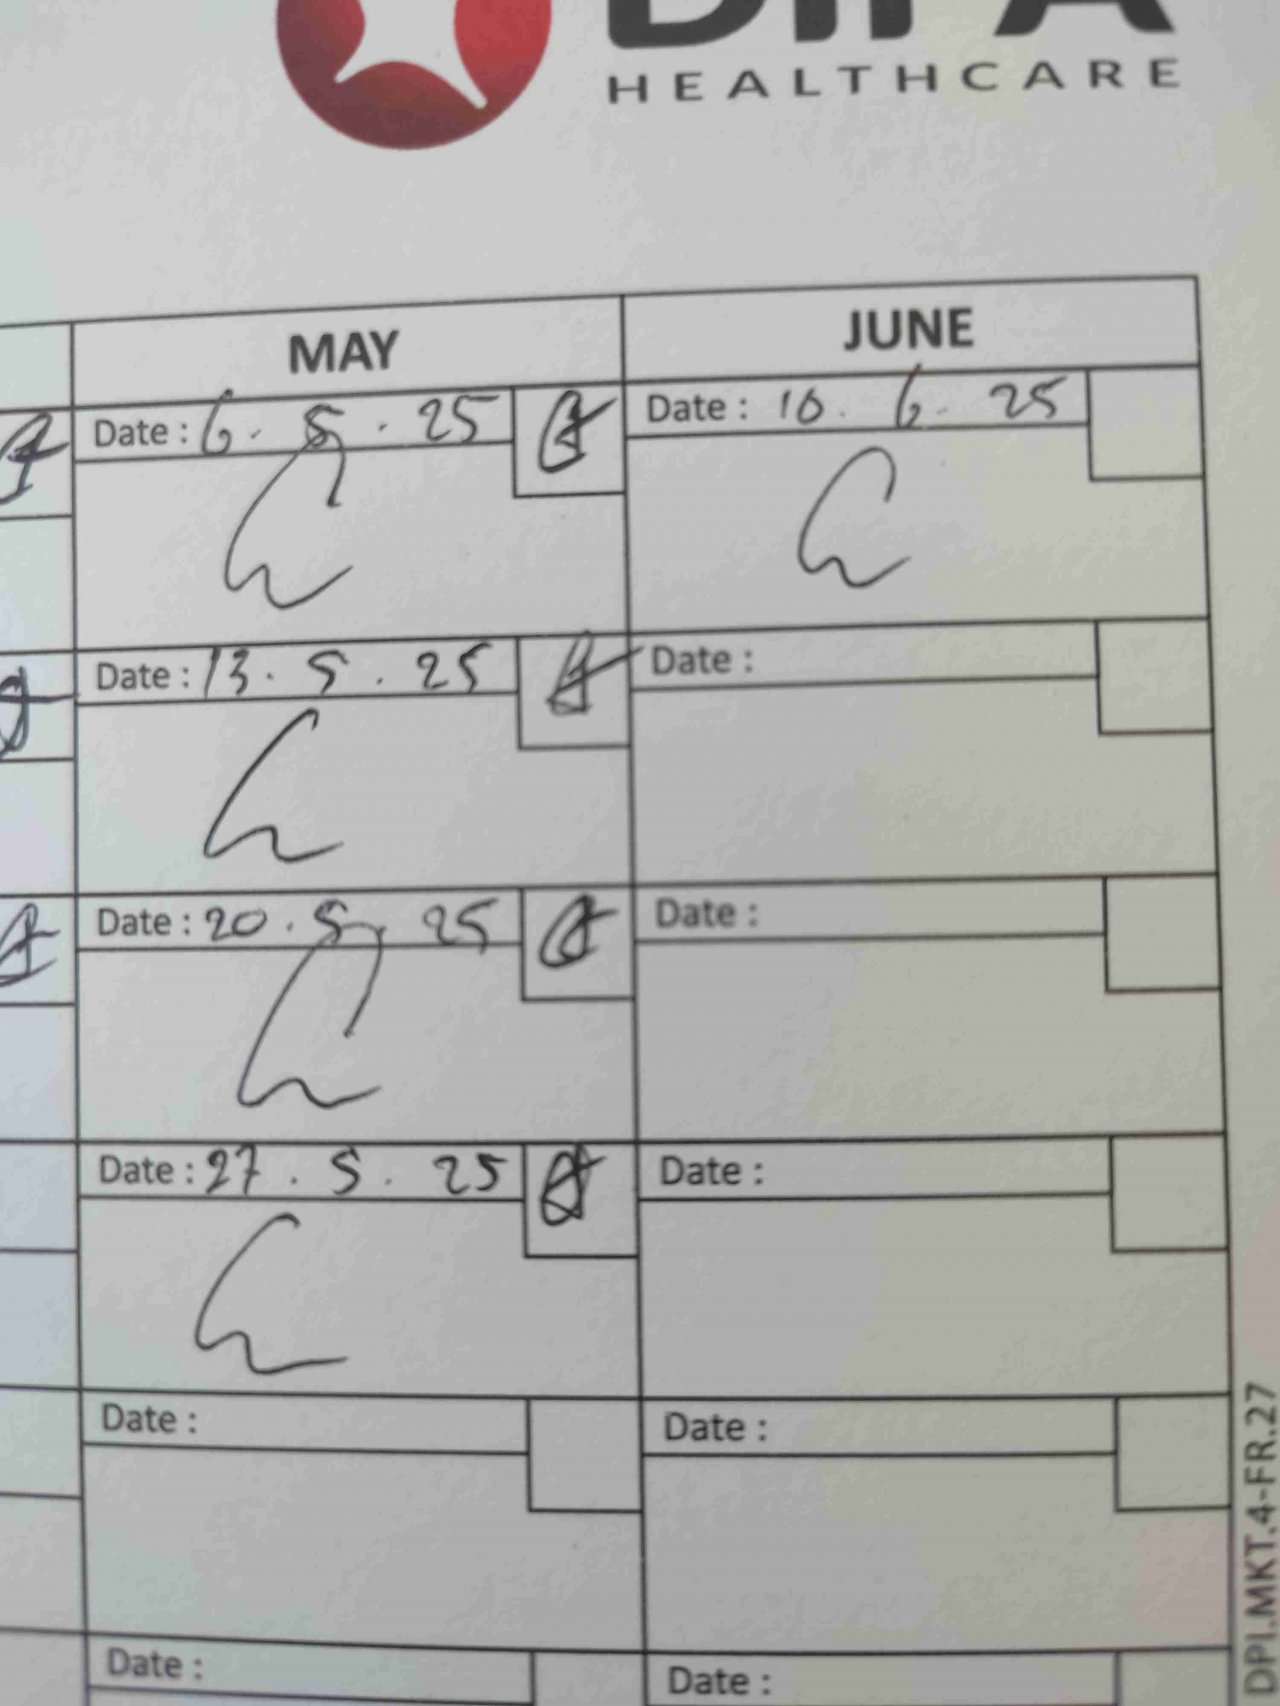 HEALTHCARE
MAY
JUNE
Date : 6. 5. 25
Date : 10. 6. 25
Date : 13. 5. 25
Date :
Date : 20. 5. 25
Date :
Date : 27. 5. 25
Date :
Date :
Date :
Date :
Date :
DPI.MKT.4-FR.27